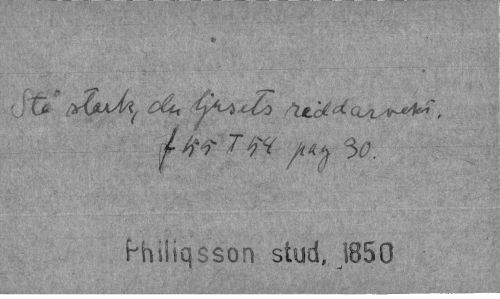 Stå stark, du ljusets riddarvakt.
f 55 T 54 pag 30.
Philiqsson stud, 1850